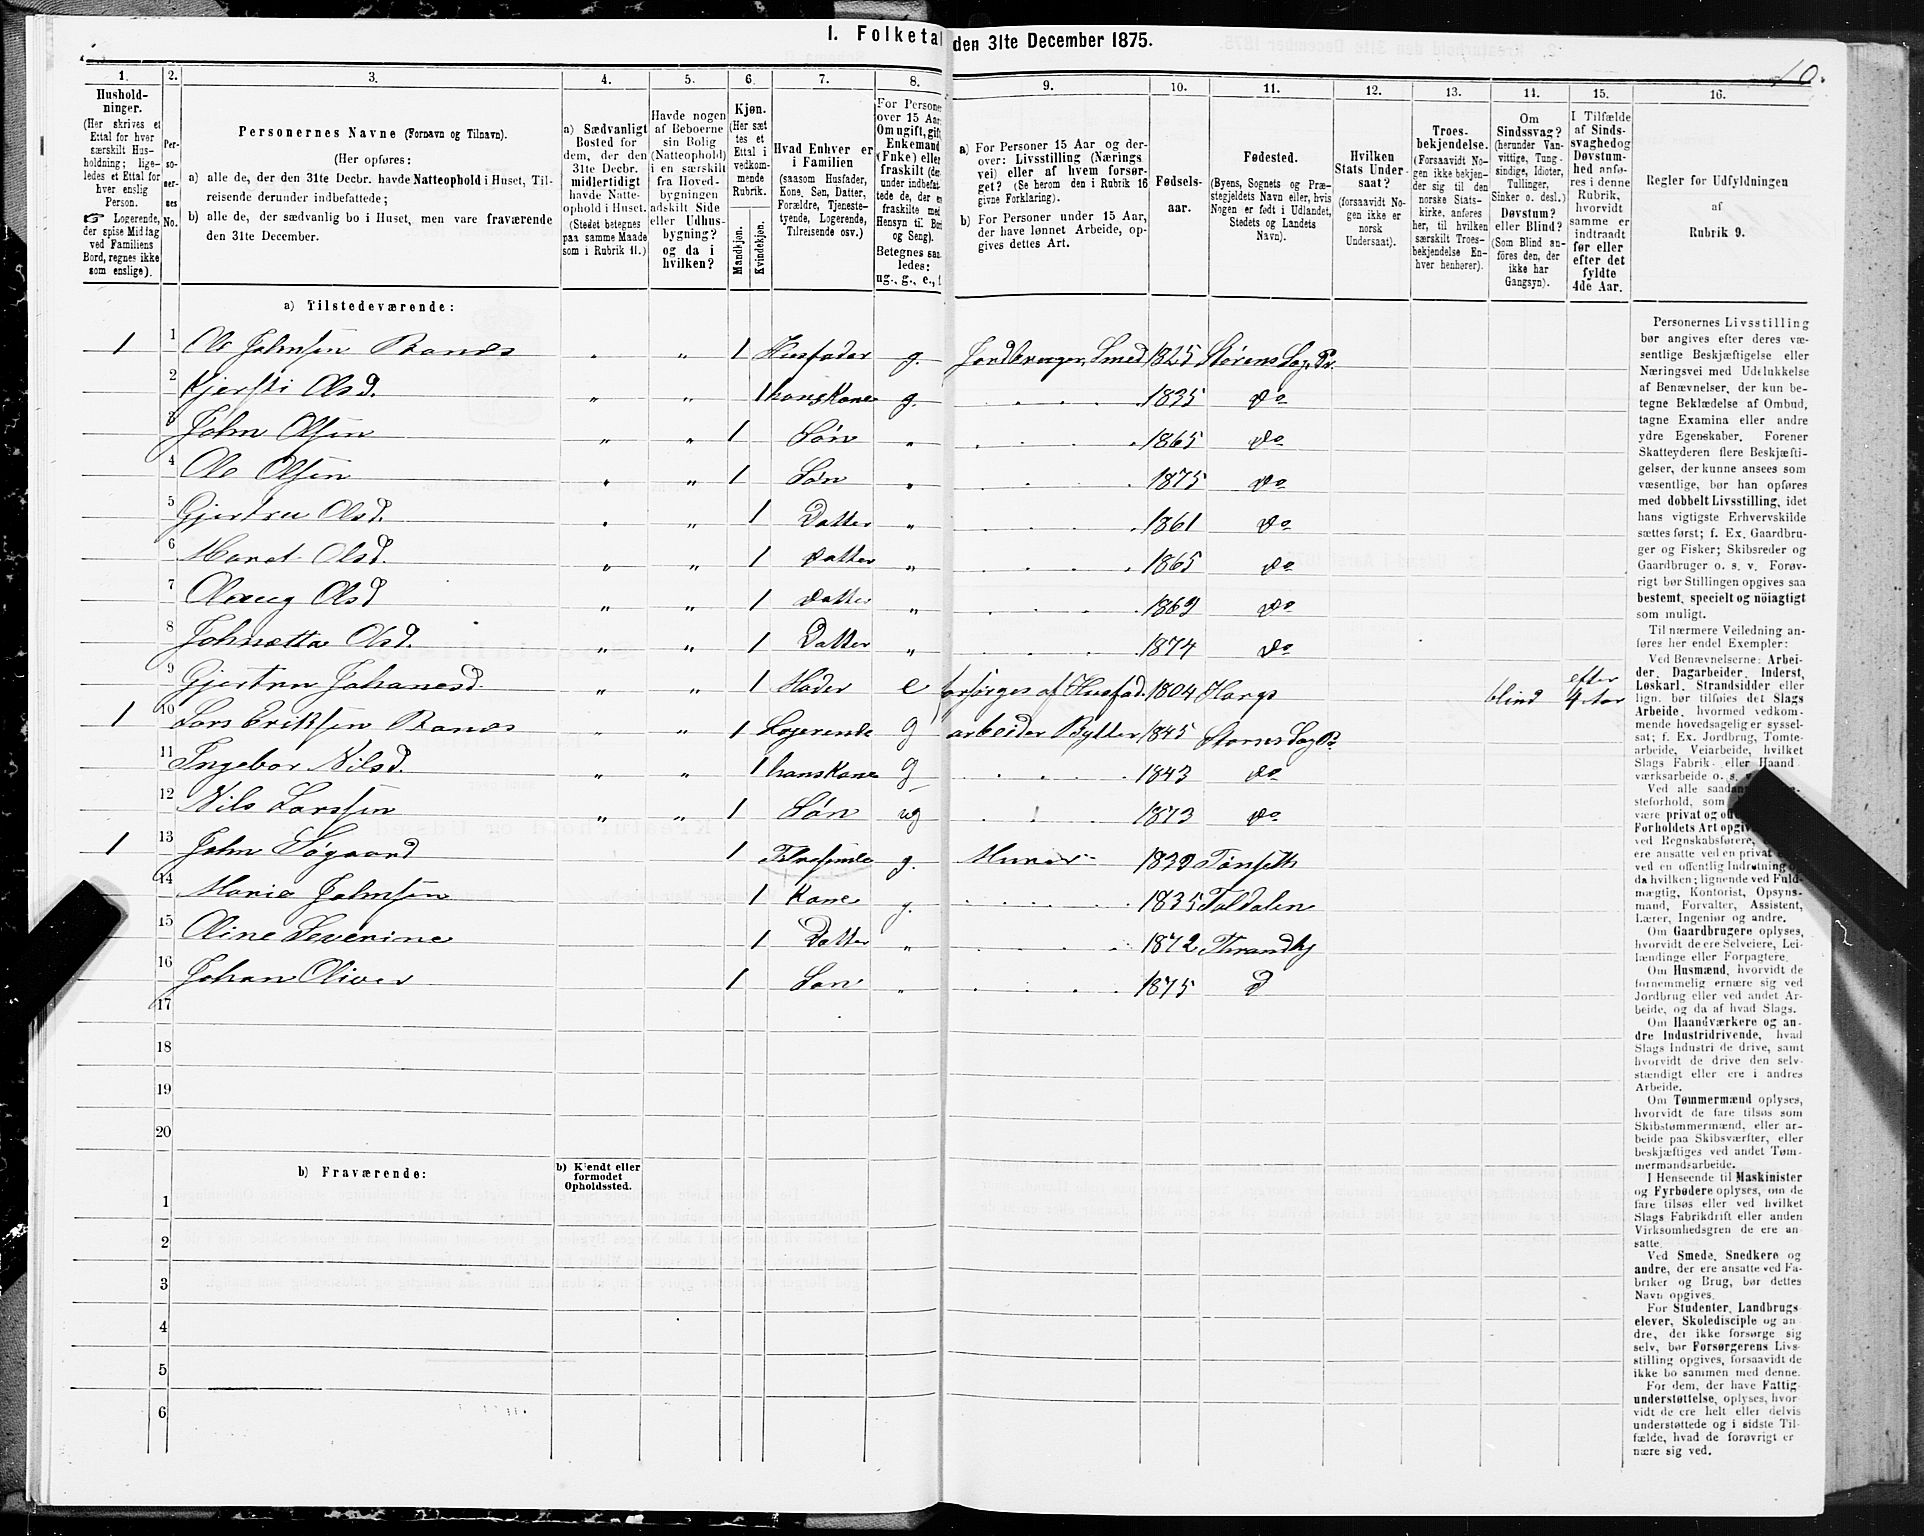 I. Folketal den 31te December 1875.
10.
1. 2. 3. 4. 5. 6. 7. 8. 9. 10. 11. 12. 13. 14. 15. 16.
Husholdninger.
(Her skrives et
Ettal for hver
særskilt Husholdning;
ligeledes et Ettal for
hver enslig
Person.
Logerende,
der spise Middag
ved Familiens
Bord, regnes ikke
som enslige).
Personernes No.
Personernes Navne (Fornavn og Tilnavn).
(Her opføres:
a) alle de, der den 31te Decbr. havde Natteophold i Huset, Tilreisende derunder indbefattede;
b) alle de, der sædvanlig bo i Huset, men vare fraværende
den 31te December.
a) Sædvanligt
Bosted for
dem, der den
31te Decbr.
midlertidigt
havde Natteophold i Huset.
(Stedet betegnes
paa samme Maade
som i Rubrik 11.)
Havde nogen
af Beboerne
sin Bolig
(Natteophold)
i en særskilt
fra Hovedbygningen
adskilt Side
eller Udhusbygning?
og da i
hvilken?
Kjøn.
(Her sættes et
Ettal i
vedkommende
Rubrik.
Mandkjøn.
Kvindekjøn.
Hvad Enhver er
i Familien
(saasom Husfader,
Kone, Søn, Datter,
Forældre, Tjenestetyende, Logerende,
Tilreisende osv.)
a) For Personer 15 Aar og derover: Livsstilling (Næringsvei) eller af hvem forsørget? (Se herom den i Rubrik 16
givne Forklaring).
b) For Personer under 15 Aar,
der have lønnet Arbeide, opgives dettes Art.
Fødselsaar.
Fødested.
(Byens, Sognets og Præstegjeldets Navn eller, hvis
Nogen er født i Udlandet,
Stedets og Landets
Navn).
Hvilken
Stats Undersaat?
(forsaavidt Nogen ikke er
norsk
Undersaat).
Troesbekjendelse.
(Forsaavidt Nogen ikke bekjender sig til den
norske Statskirke, anføres
her, til hvilken
særskilt Troesbekjendelse Enhver henhører).
Om
Sindssvag?
(herunder Vanvittige, Tungsindige, Idioter,
Tullinger,
Sinker o. desl.)
Døvstum?
eller Blind?
(Som Blind anføres den, der
ikke har
Gangsyn).
I Tilfælde
af Sindssvaghed og
Døvstumhed anføres i denne
Rubrik,
hvorvidt
samme er
indtraadt
før eller
efter det
fyldte
4de Aar.
Regler for Udfyldningen
af
Rubrik 9.
a) Tilstedeværende:
1 1 Ole Johnsen 1 Husfader g. Smed 1825
2 Kjersti Olsd. 1 hans Kone g. 1835 Do
3 John Olsen 1 Søn 1865 Do
4 Ole Olsen 1 Søn 1875 Do
5 Gjertru Olsd. 1 Datter 1861 Do
6 Maret Olsd. 1 Datter 1865 Do
7 Olsd 1 Datter 1869 Do
8 Johnetta Olsd. 1 Datter 1874 Do
9 Gjertru Johanesd. 1 Moder e forsørges af Husfad. 1804 blind efter 4 Aar
1 10 Lars Eriksen 1 Logerende g arbeider 1845
11 Ingebor Nilsd. 1 hans Kone g 1843 Do
12 Nils Larssen 1 Søn ug 1873 Do
1 13 John Søgaard 1 g. Murer 1832 Tønseth
14 Marie Johnsen 1 Kone g. 1835 Foldalen
15 Oline Severine 1 Datter 1872
16 Johan Oliver 1 Søn 1875 D
17
18
19
20
b) Fraværende:
b) Kjendt eller
formodet
Opholdssted.
1
2
3
4
5
6
Personernes Livsstilling
bør angives efter deres væsentlige Beskjæftigelse eller
Næringsvei med Udelukkelse
af Benævnelser, der kun betegne Beklædelse af Ombud,
tagne Examina eller andre
ydre Egenskaber. Forener
Skatteyderen flere Beskjæftigelser, der kunne ansees som
væsentlige, bør han opføres
med dobbelt Livsstilling, idet
hans vigtigste Erhvervskilde
sættes først; f. Ex. Gaardbruger og Fisker; Skibsreder og
Gaardbruger o. s. v. Forøvrigt bør Stillingen opgives saa
bestemt, specielt og nöiagtigt
som muligt.
Til nærmere Veiledning anføres her endel Exempler:
Ved Benævnelserne: Arbeider, Dagarbeider, Inderst,
Løskarl, Strandsidder eller
lign. bør tilføies det Slags
Arbeide, hvormed vedkommende hovedsagelig er sysselsat; f. Ex. Jordbrug, Tomtearbeide, Veiarbeide, hvilket
Slags Fabrik- eller Haandværksarbeide o. s. v.
Om Gaardbrugere oplyses,
hvorvidt de ere Selveiere, Leilændinge eller Forpagtere.
Om Husmænd, hvorvidt de
fornemmelig ernære sig ved
Jordbrug eller ved andet Arbeide, og da af hvad Slags.
Om Haandværkere og andre Industridrivende, hvad
Slags Industri de drive, samt
hvorvidt de drive den selvstændigt eller ere i andres
Arbeide.
Om Tømmermænd oplyses,
hvorvidt de fare tilsøs som
Skibstømmermænd, eller arbeide paa Skibsværfter, eller
beskjæftiges ved andet Tømmermandsarbeide.
I Henseende til Maskinister
og Fyrbødere oplyses, om de
fare tilsøs eller ved hvilket
Slags Fabrikdrift eller anden
Virksomhedsgren de ere ansatte.
Ved Smede, Snedkere og
andre, der ere ansatte ved Fabriker og Brug, bør dettes
Navn opgives.
For Studenter, Landbrugselever, Skoledisciple og andre, der ikke forsørge sig
selv, bør Forsørgerens Livsstilling opgives, forsaavidt de
ikke bo sammen med denne.
For dem, der have Fattigunderstøttelse, oplyses, hvorvidt de ere helt eller delvis
understøttede og i sidste Tilfælde, hvad de forøvrigt ernære sig ved.